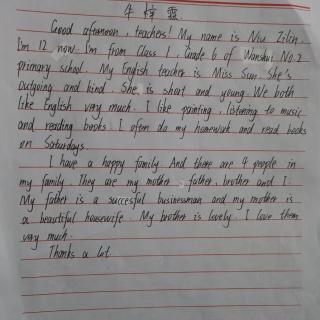 牛梓霖
Good afternoon, teachers! My name is Niu Zilin.
I'm 12 now. I'm from Class 1, Grade 6 of Wanshui No.2
primary school. My English teacher is Miss Sun. She's
outgoing and kind. She is short and young. We both
like English very much. I like painting, listening to music
and reading books. I often do my homework and read books
on Saturdays.
I have a happy family. And there are 4 people in
my family. They are my mother, father, brother and I.
My father is a succesful businessman and my mother is
a beautiful housewife. My brother is lovely. I love them
very much.
Thanks a lot.